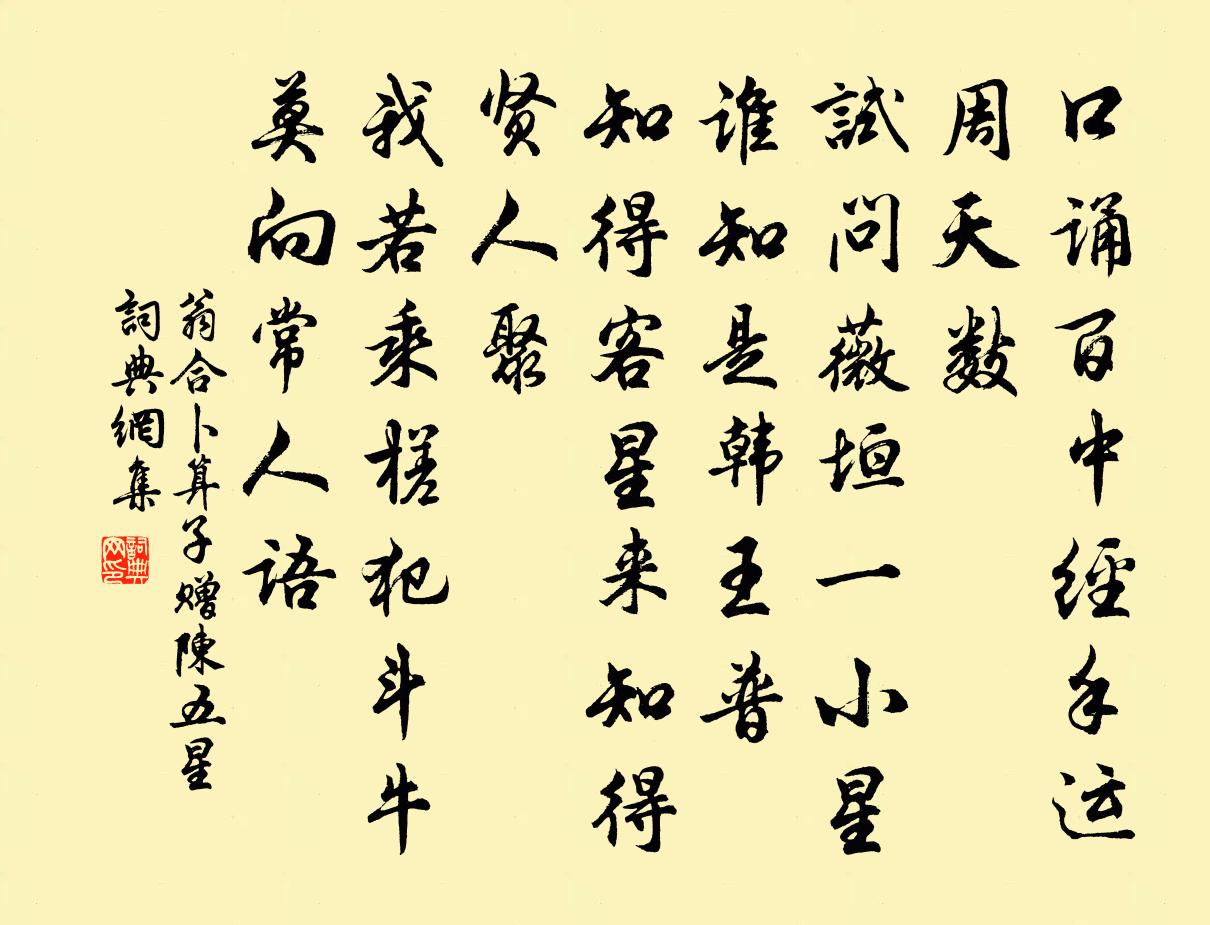 口诵百中經手运
周天数
試问薇垣一小星
谁知是韩王普
知得客星来知得
贤人聚
我若乘槎犯斗牛
莫向常人语
翁合卜算子赠陳五星
詞典網集
詞典网印